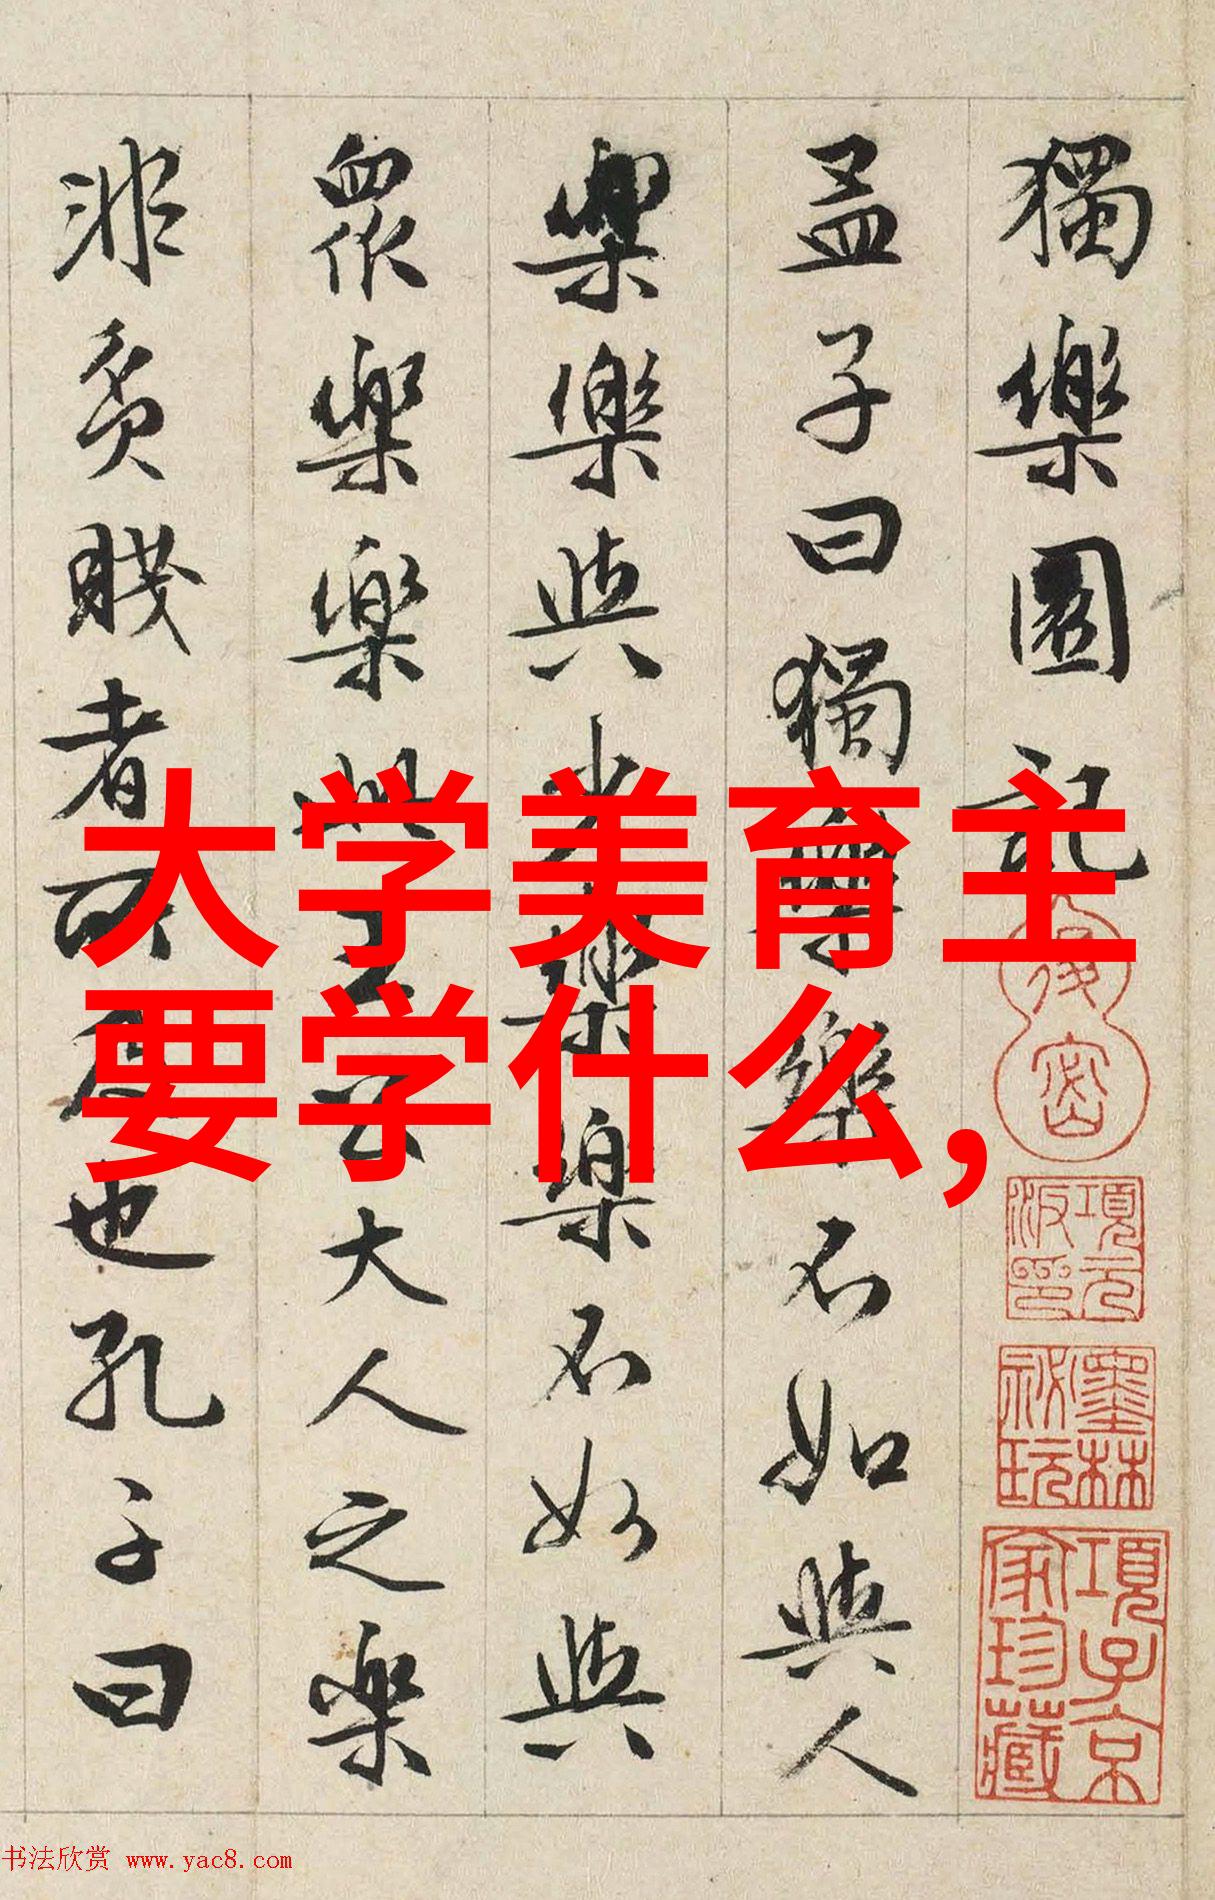 獨樂園記
孟子曰獨樂樂不如與人
樂樂與少樂樂不如與
眾樂樂此王公大人之樂
非貧賤者所及也孔子曰
大学美育主
要学什么,
退密
項元汴印
墨林祕玩
項子京家珍藏
书法欣赏 www.yac8.com